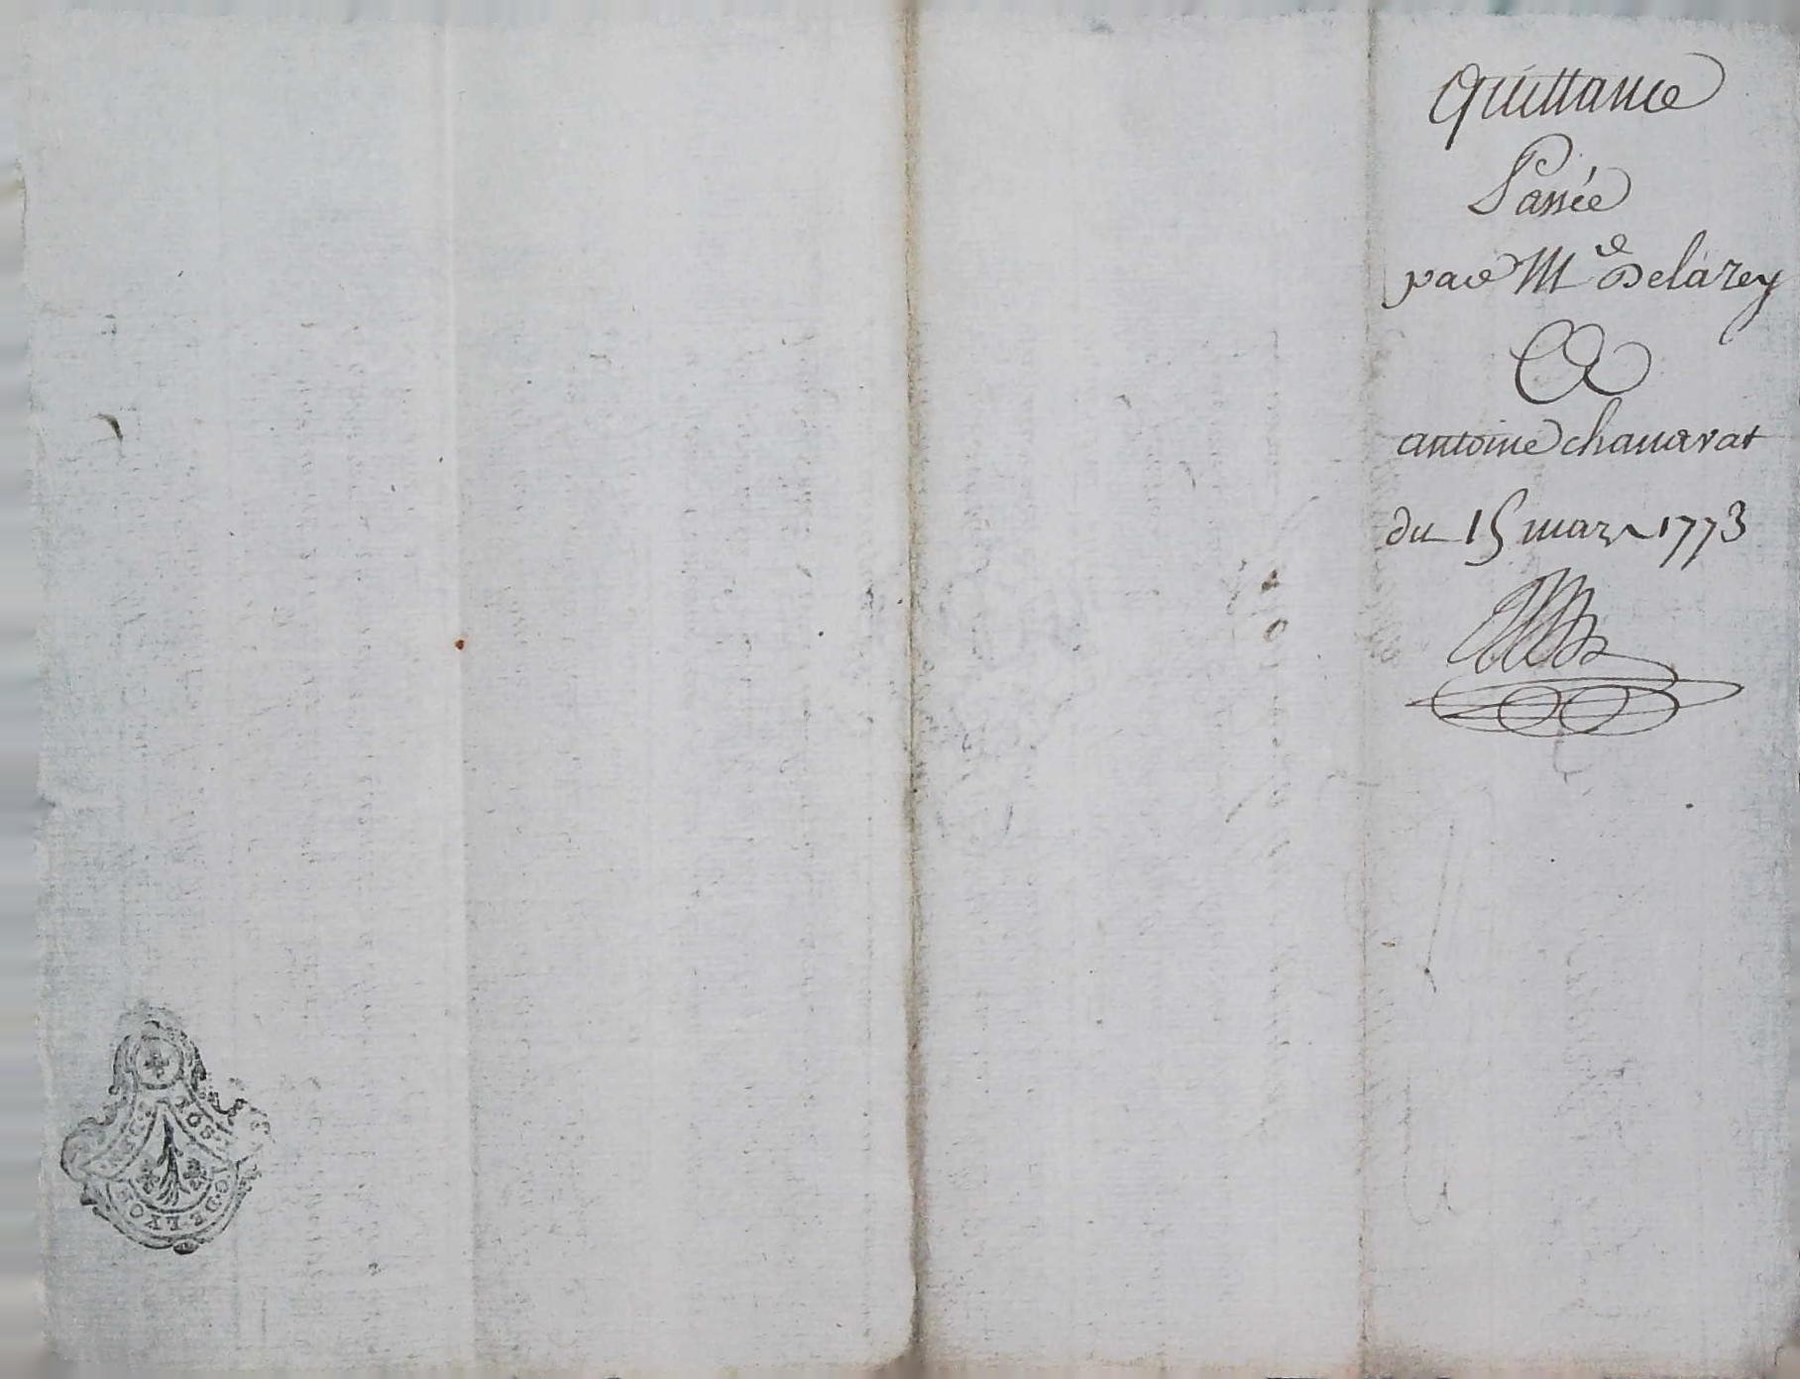 Quittance
Passée
par Me Delarey
A
antoine chanavat
du 15 mars 1773
DE LYON